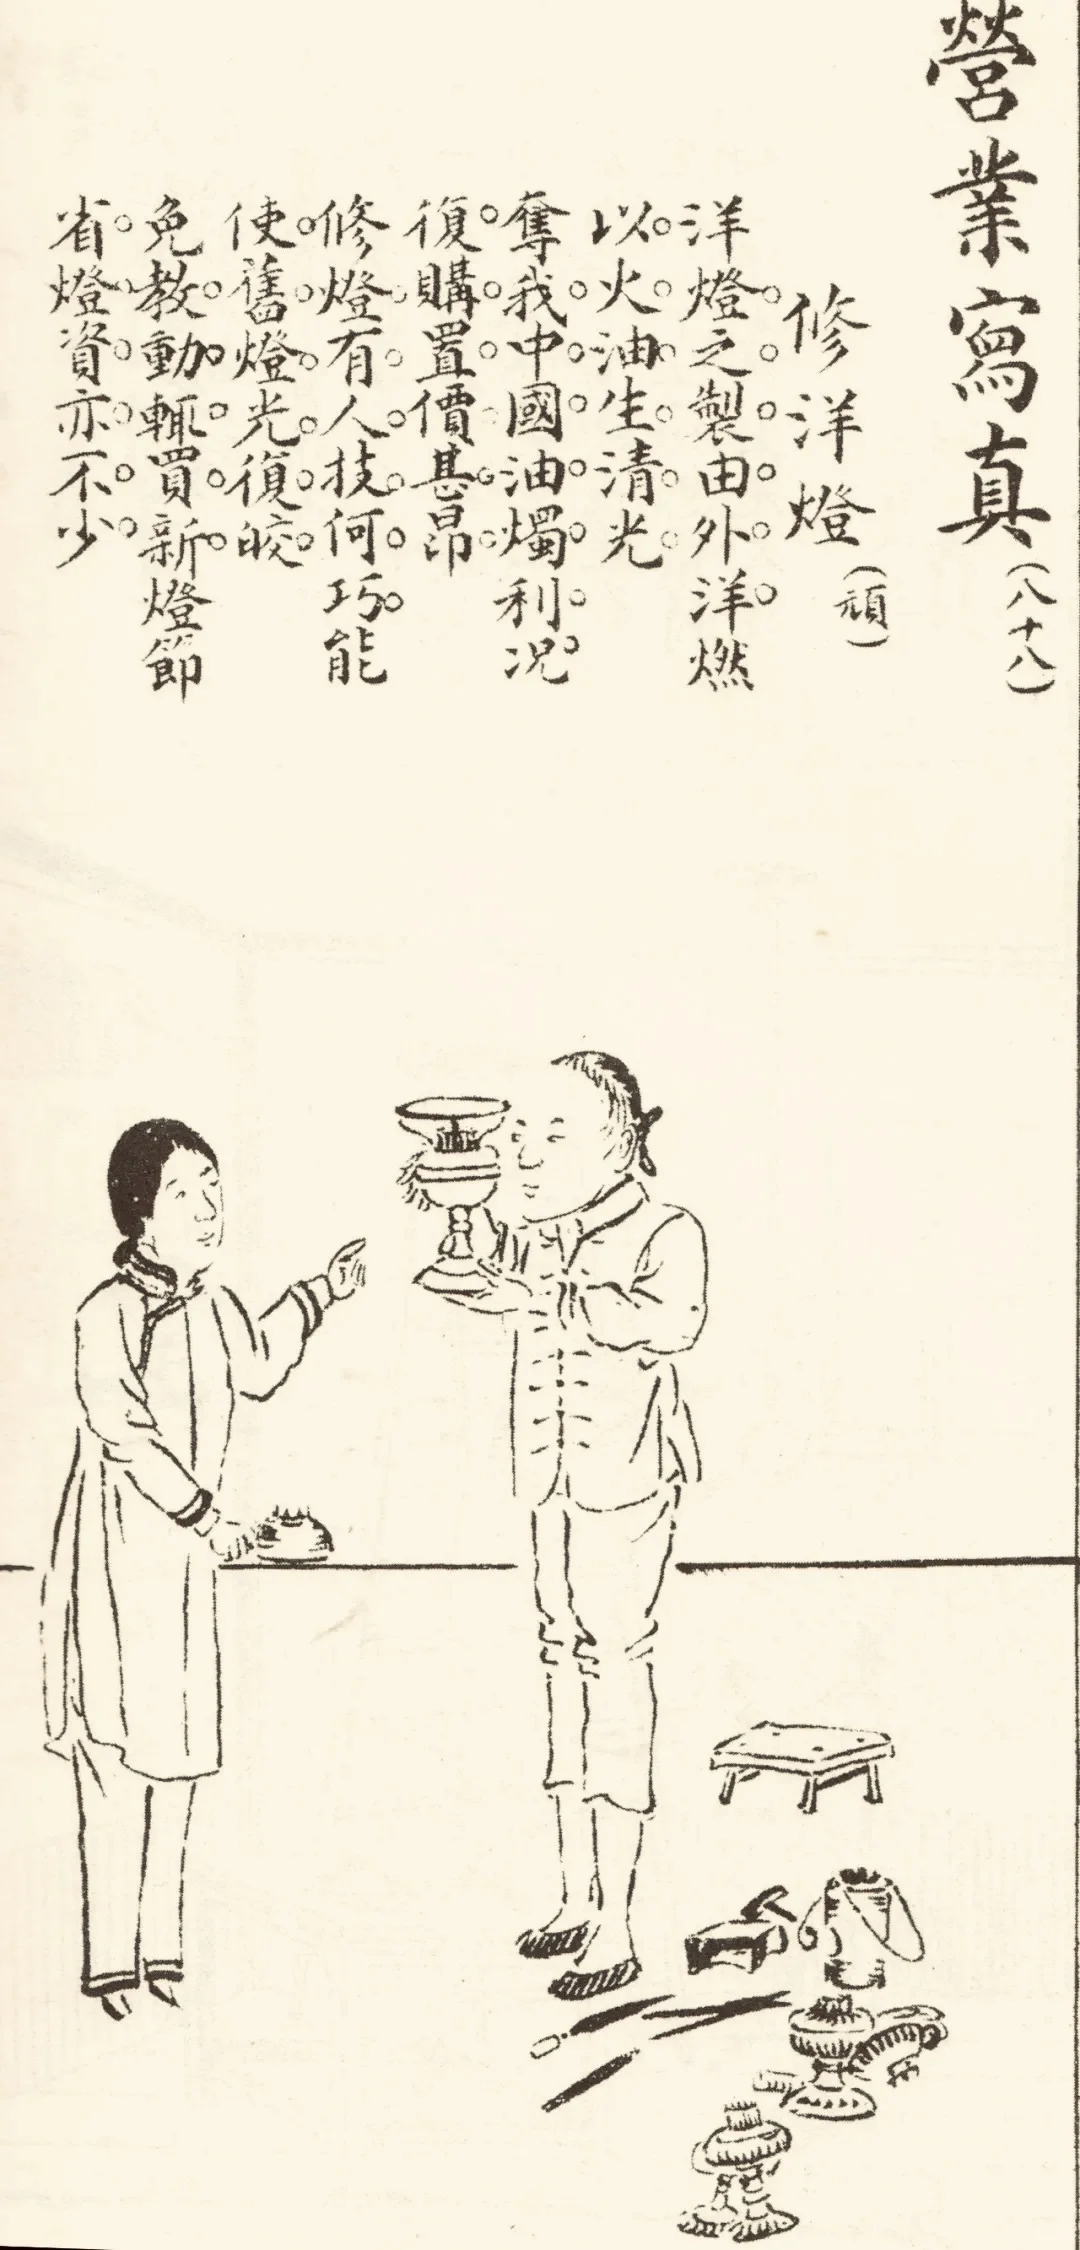 營業寫真(八十八)
修洋燈(頑)
洋燈之製由外洋燃
以火油生清光
奪我中國油燭利況
復購置價甚昂
修燈有人技何巧能
使舊燈光復皎
免教動輒買新燈節
省燈資亦不少